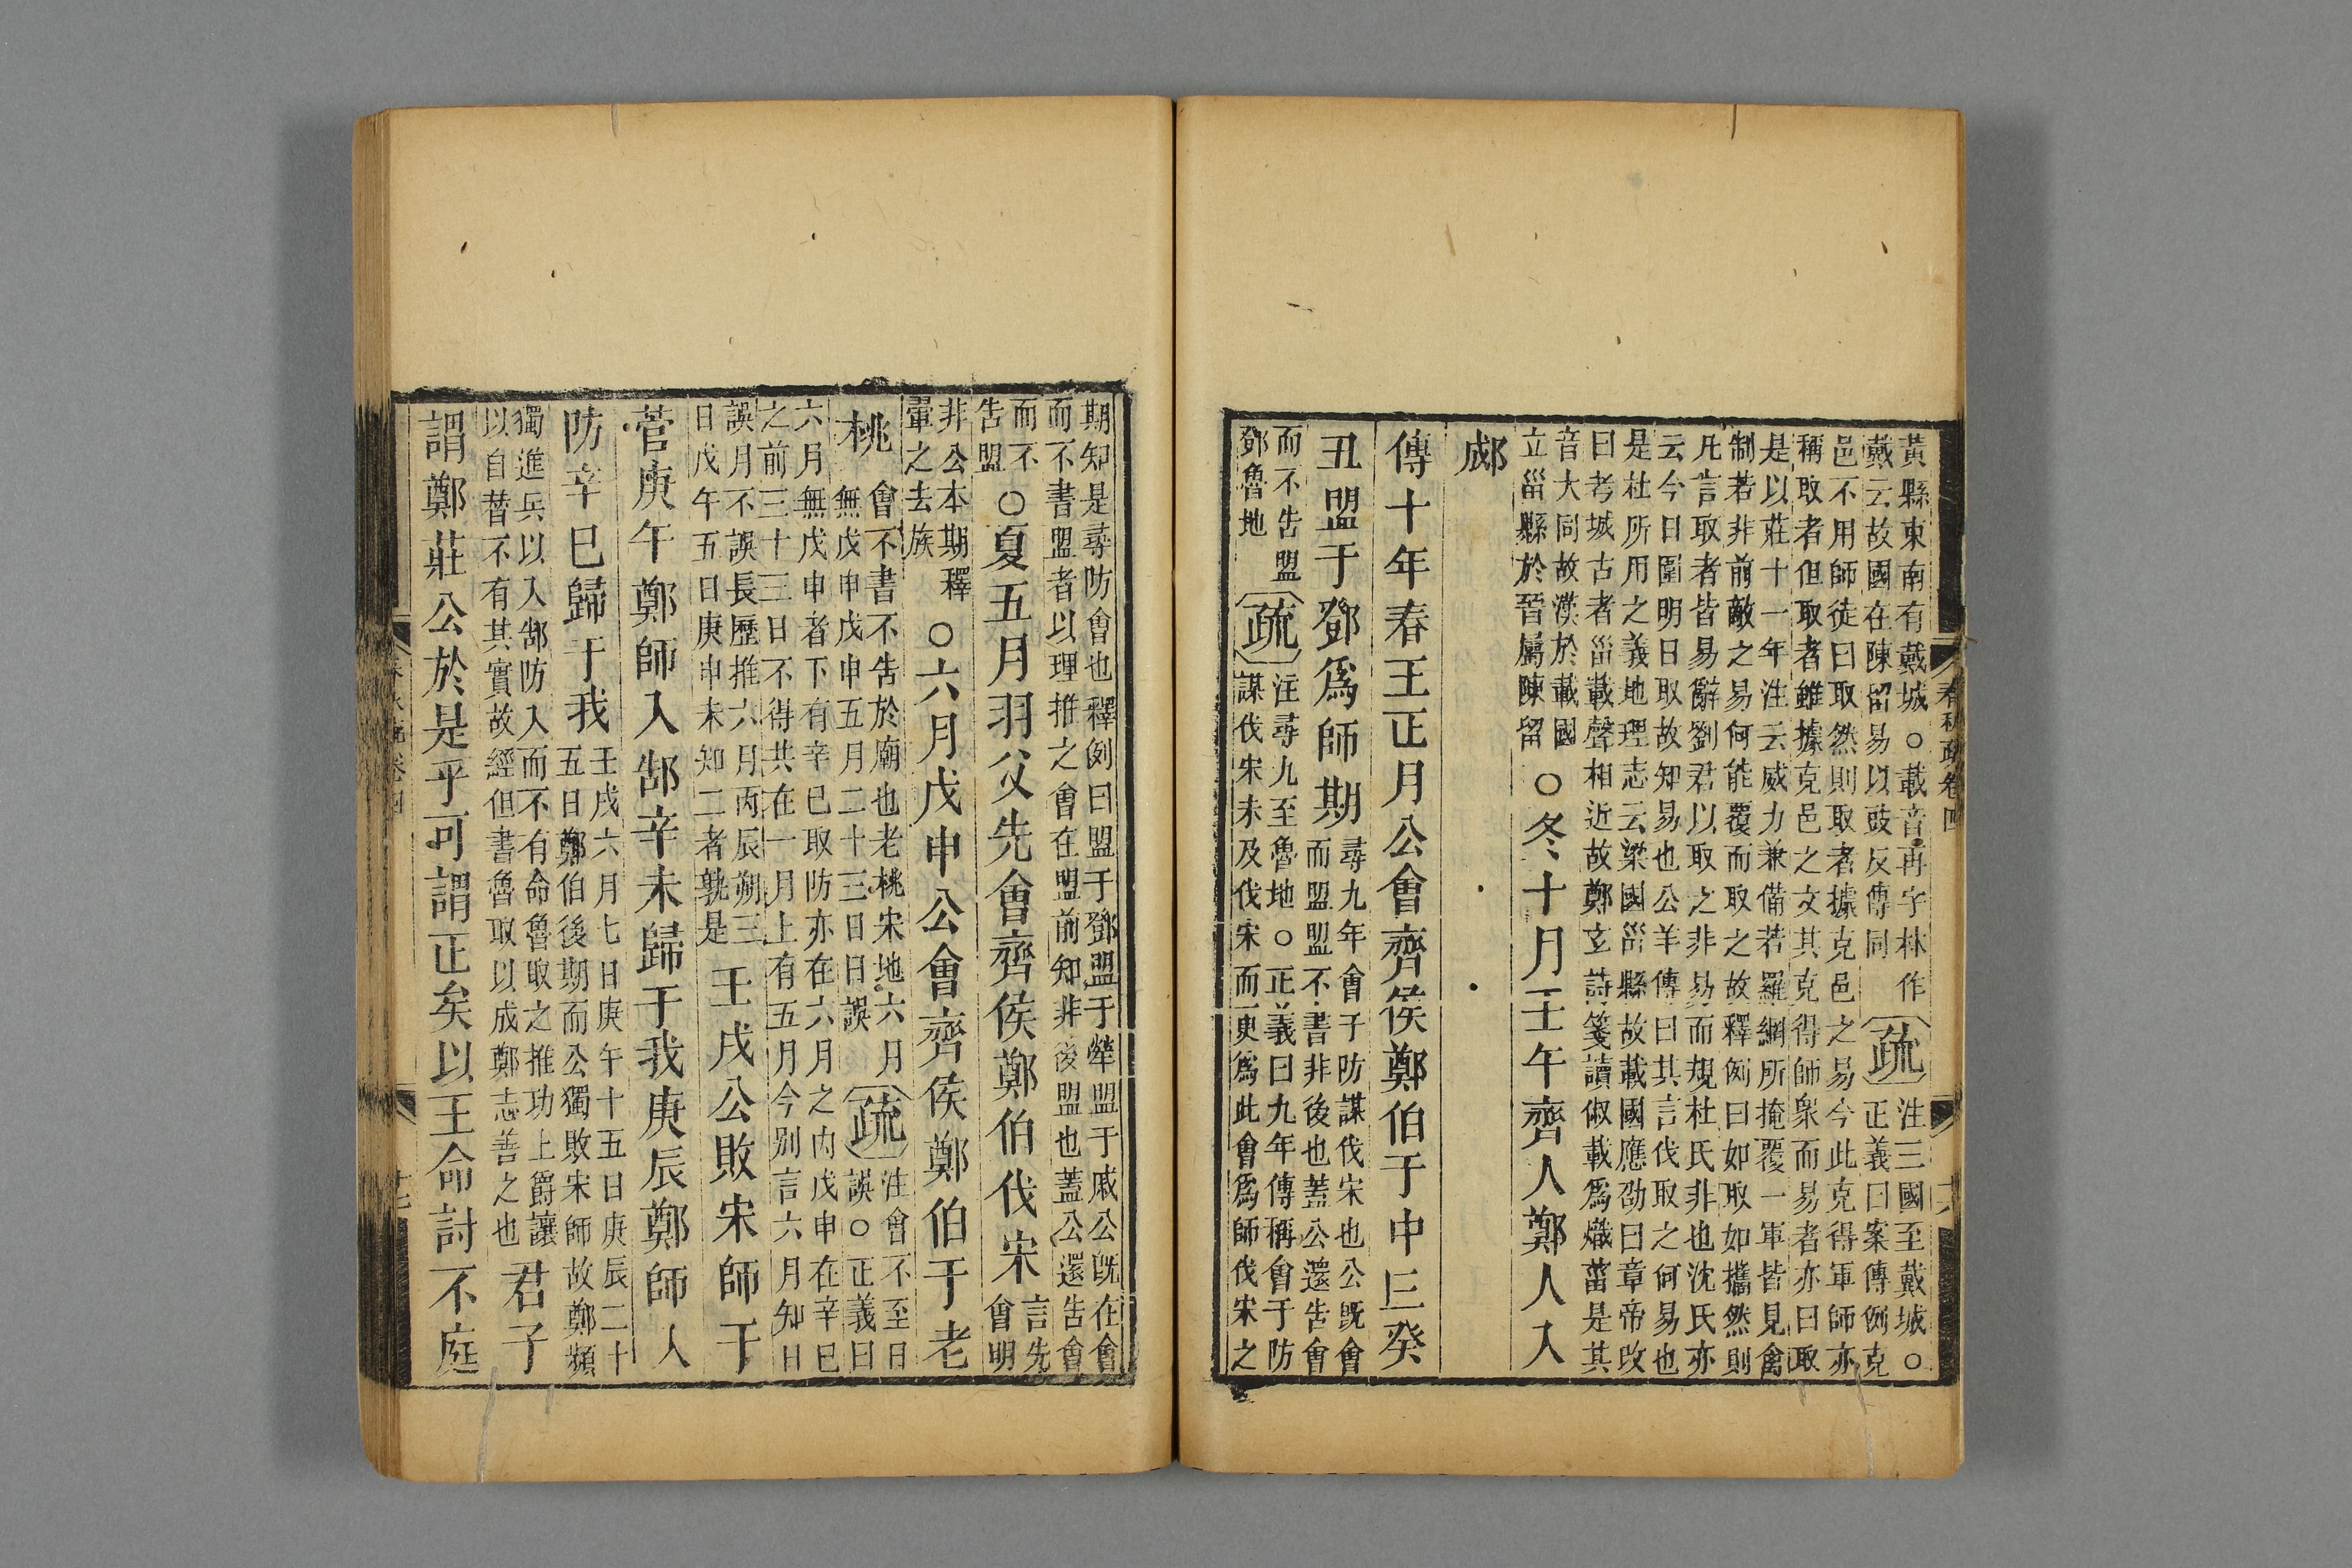 黃縣東南有戴城○載音再字林作
戴云故國在陳留易以豉反傳同
疏
注三國至戴城○
正義曰案傳例克
邑不用師徒曰取然則取者據克邑之易今此克得軍師亦
稱取者但取者雖據克邑之文其克得師衆而易者亦曰取
是以莊十一年注云威力兼備若羅網所掩覆一軍皆見禽
制若非前敵之易何能覆而取之故釋例曰如取如攜然則
凡言取者皆易辭劉君以取之非易而規杜氏非也沈氏亦
云今日圍明日取故知易也公羊傳曰其言伐取之何易也
是杜所用之義地理志云梁國甾縣故載國應劭曰章帝改
曰考城古者甾載聲相近故鄭玄詩箋讀俶載爲熾菑是其
音大同故漢於載國
立甾縣於晉屬陳留
○冬十月壬午齊人鄭人入
郕
傳十年春王正月公會齊侯鄭伯于中丘癸
丑盟于鄧爲師期
尋九年會于防謀伐宋也公既會
而盟盟不書非後也蓋公還告會
而不告盟
鄧魯地
疏
注尋九至魯地○正義曰九年傳稱會于防
謀伐宋未及伐宋而更爲此會爲師伐宋之
春秋疏卷四
期知是尋防會也釋例曰盟于鄧盟于犖盟于戚公既在會
而不書盟者以理推之會在盟前知非後盟也蓋公還告會
而不
告盟
○夏五月羽父先會齊侯鄭伯伐宋
言先
會明
非公本期釋
翬之去族
○六月戊申公會齊侯鄭伯于老
桃
會不書不告於廟也老桃宋地六月
無戊申戊申五月二十三日日誤
疏
注會不至日
誤○正義曰
六月無戊申者下有辛巳取防亦在六月之内戊申在辛巳
之前三十三日不得共在一月上有五月今别言六月知日
誤月不誤長歷推六月丙辰朔三
日戊午五日庚申未知二者孰是
壬戌公敗宋師于
菅庚午鄭師入郜辛未歸于我庚辰鄭師入
防辛巳歸于我
壬戌六月七日庚午十五日庚辰二十
五日鄭伯後期而公獨敗宋師故鄭頻
獨進兵以入郜防入而不有命魯取之推功上爵讓
以自替不有其實故經但書魯取以成鄭志善之也
君子
謂鄭莊公於是乎可謂正矣以王命討不庭